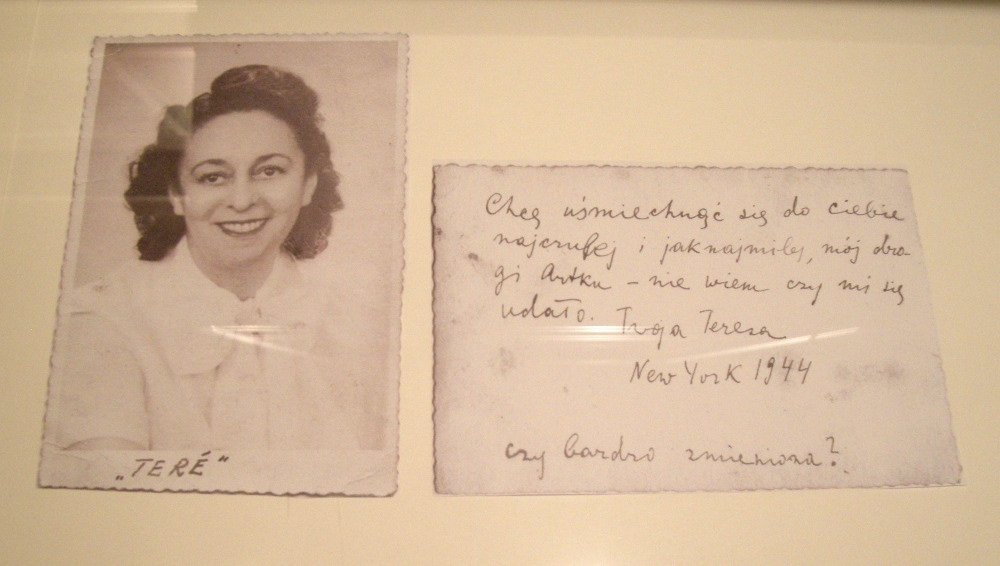 „TERÉ”
Chcę uśmiechnąć się do ciebie
najczulej i jaknajmilej, mój dro-
gi Artku – nie wiem czy mi się
udało. Twoja Teresa
New York 1944
czy bardzo zmieniona?